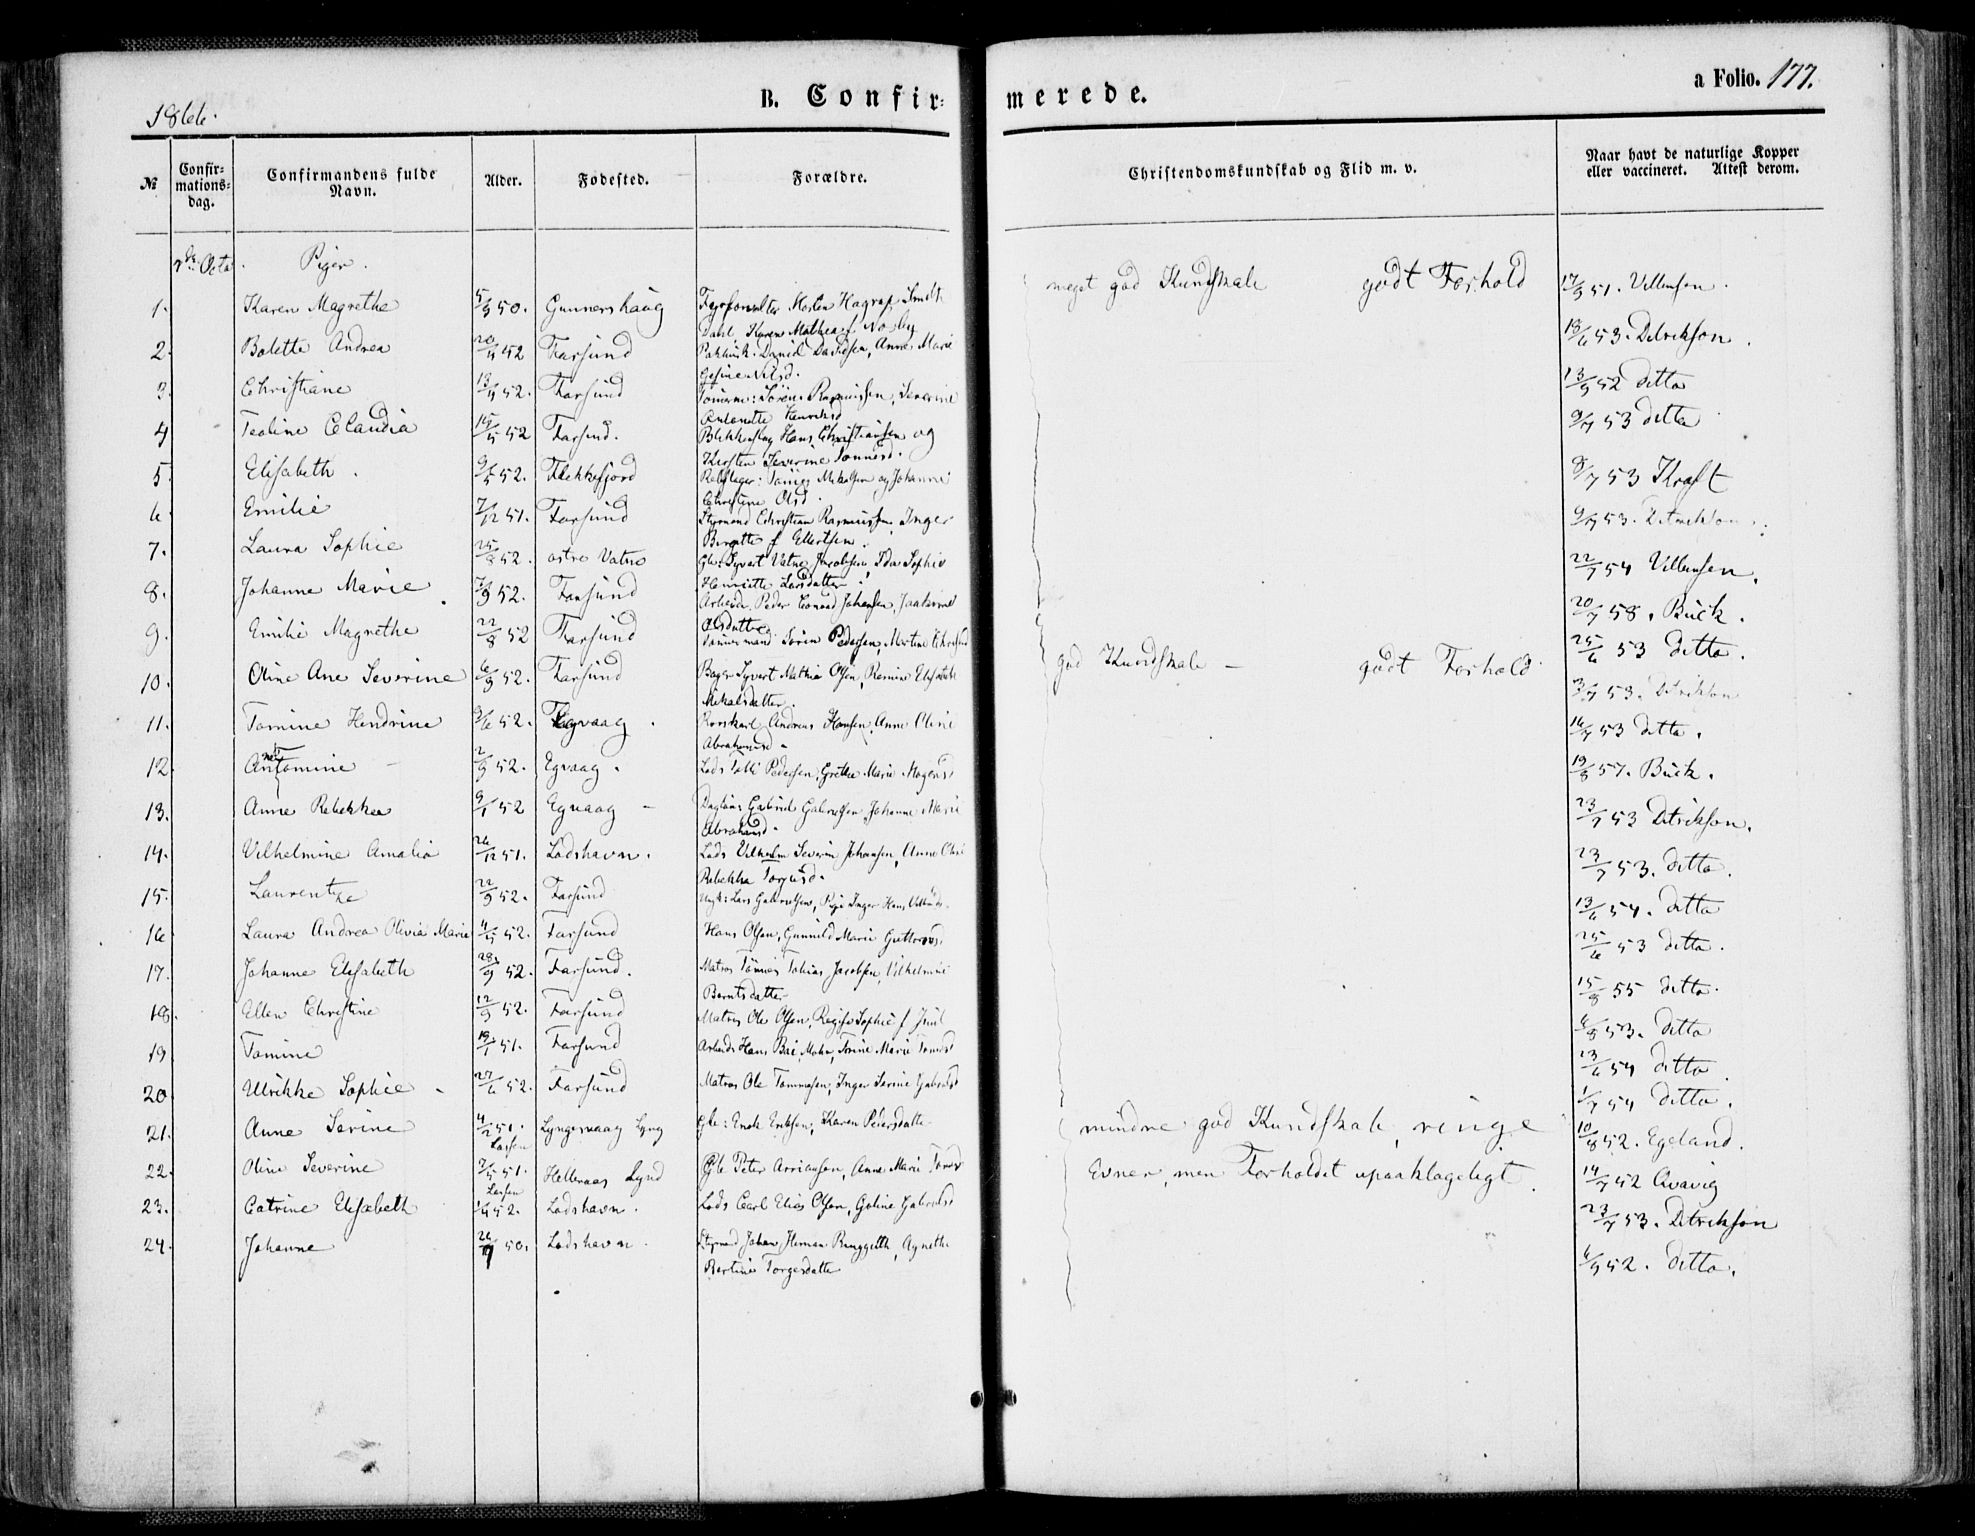 1866.
B. Confir-
merede.
a Folio. 177.
№
Confir-
mations-
dag.
Confirmandens fulde
Navn.
Alder.
Fødested.
Forældre.
Christendomskundskab og Flid m. v.
Naar havt de naturlige Kopper
eller vaccineret. Attest derom.
Octo. Piger.
meget god Kundskab godt Forhold
1. Karen Magrethe 5/9 50. Gunnershaug
Dahl, Karen Mathea f. Norby
17/9 51. Villumsen.
2. Bolette Andrea 20/4 52 Farsund Daniel Davidsen, Anne Marie
Gesine Nilsd.
18/6 53. Ditrikson.
3. Christiane 13/4 52. Farsund Tømerm: Søren Rasmussen, Severine
Antonette Henriksd
13/9 52 ditto
4. Teoline Claudia 15/5 52 Farsund. Blikkenslag Hans Christiansen og
Kirsten Severine Tønnesd.
9/7 53 ditto
5. Elisabeth. 9/5 52. Flekkefjord Rebslager: Tønnes Mikalsen og Johanne
Christine Olsd.
8/7 53 Kraft
6. Emilie 7/12 51. Farsund Styrmand Christian Rasmussen, Inger
Birgitte f Ellertsen.
9/7 53. Ditrikson.
7. Laura Sophie 25/8 52. østre Vatne Gbr. Syvert Vatne Jacobsen, Ida Sophie
Henriette Larsdatter.
22/7 54 Villumsen.
8. Johanne Marie 7/9 52. Farsund Arbeider Peder Conrad Johansen, Joakime
Olsdatter
20/7 58. Buck.
9. Emilie Magrethe 22/8 52 Farsund Tømmermand Søren Pedersen, Martine
25/6 53 ditto.
god Kundskab - godt Forhold.
10. Oline Ane Severine 6/9 52. Farsund Bager Syvert Mathias Olsen, Elisabeth
Mikalsdatter.
3/7 53. Ditrikson
11. Tomine Hendrine 9/6 52. Egvaag. Andreas Hansen, Anne Oline
Abrahamsd -
16/7 53 ditto.
12. 2/9 52. Egvaag. Lods Pedersen, Grethe Marie Mogensd
19/8 57. Buck.
13. Anne Rebekka 9/1 52 Egvaag - Gabriel Gabrielsen, Johanne Marie
Abrahamsd.
23/7 53 Ditrikson.
14. Vilhelmine Amalia 26/12 51. Lodshavn. Lods Vilhelm Severin Johansen, Anne
Rebekka Torgiusd.
23/7 53. ditto.
15. Laurentze 22/9 52. Farsund Ungk: Lars Gabrielsen, Pige Inger
13/6 54. ditto
16 Laura Andrea Olivia Marie 4/5 52. Farsund Hans Olsen, Gunnild Marie Guttormsd.
25/6 53 ditto.
17. Johanne Elisabeth 28/9 52. Farsund. Matros Tønnes Tobias Jacobsen, Vilhelmine
Berntsdatter
15/8 55 ditto.
18. Ellen Christine 12/9 52. Farsund Matros Ole Olsen, Sophie f Juul
6/8 53. ditto
19 Tomine 19/1 51. Farsund Arbeids Hans Mohn, Trine Marie
13/6 54 ditto
20 Ulrikke Sophie - 27/6 52. Farsund Matros Ole Tommesen, Inger Serine Gabrielsd
1/7 54 ditto.
mindre god Kundskab, ringe
21. Anne Serine 4/2 51. Lyngsvaag Lyng Gbr: Enok Eriksen, Karen Pedersdatter
10/8 52. Egeland.
Evner, men Forholdet upaaklageligt.
22. Oline Severine 7/5 51. Helleraas Lynd Gbr Peter Arriansen, Anne Marie
14/7 52 Qvavig
23. Catrine Elisabeth 52. Lodshavn. Lods Carl Elias Olsen, Goline Gabrielsd
23/7 53. Ditrikson
24. Johanne 50. Lodshavn. Styrmd Johan Herman, Agnethe
Bertine Torgersdatter
6/9 52. ditto.